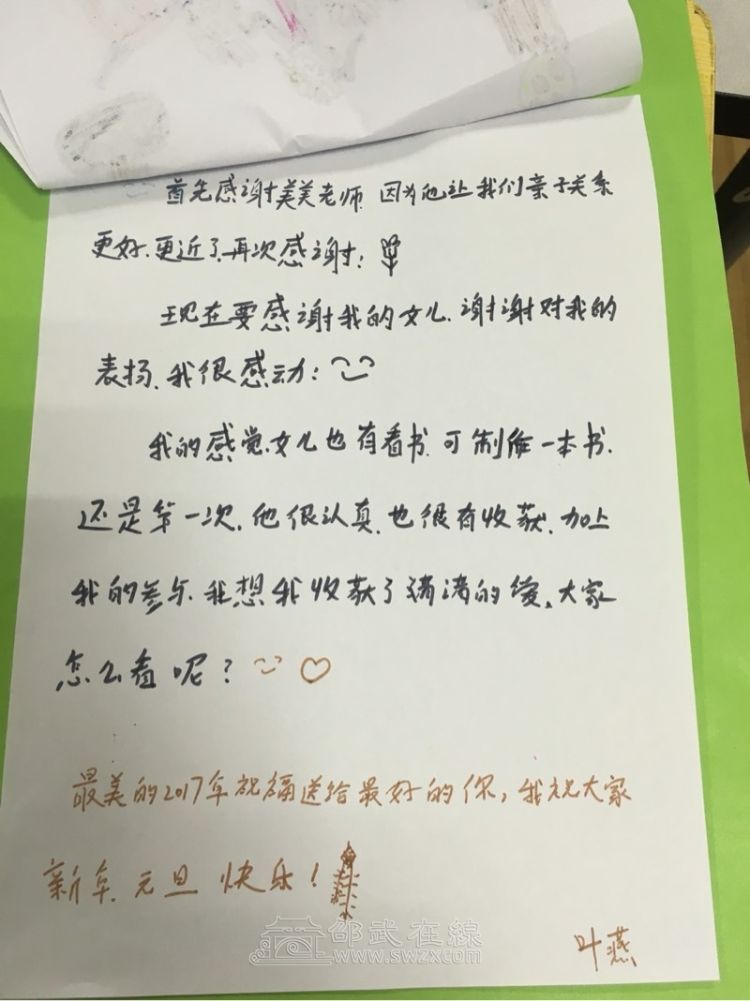 首先感谢美美老师.因为他让我们亲子关系
更好.更近了.再次感谢:
现在要感谢我的女儿.谢谢对我的
表扬.我很感动:
我的感觉.女儿也有看书.可制作一本书.
还是第一次.他很认真.也很有收获.加上
我的参与.我想我收获了满满的爱.大家
怎么看呢?
最美的2017年祝福送给最好的你,我祝大家
新年.元旦快乐!
叶燕
邵武在線
www.swzx.com